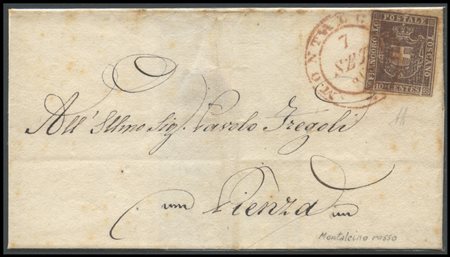 MONTALCINO
7
SET
FRANCOBOLLO
POSTALE
TOSCANO
10 CENTES
All' Illmo Sig. Pavolo Fregoli
Pienza
Montalcino rosso